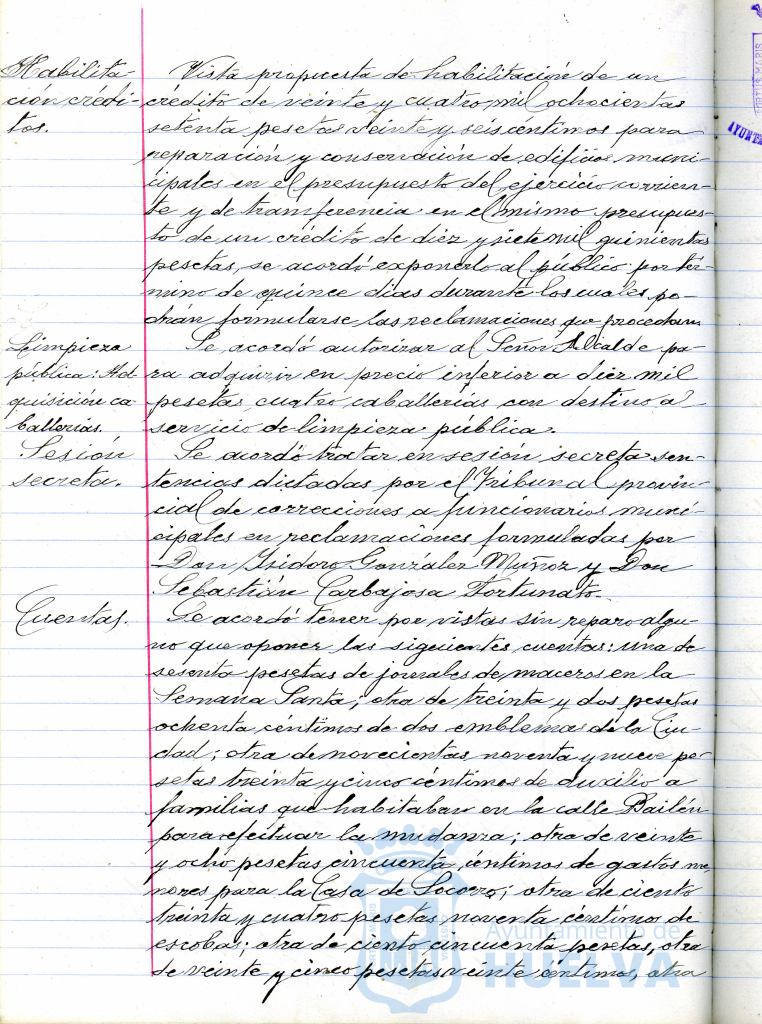 Habilita-
ción crédi-
tos.
Vista propuesta de habilitación de un
crédito de veinte y cuatro mil ochocientas
setenta pesetas veinte y seis céntimos para
reparación y conservación de edificios muni-
cipales en el presupuesto del ejercicio corrien-
te y de transferencia en el mismo presupues-
to de un crédito de diez y siete mil quinientas
pesetas, se acordó exponerlo al público por tér-
mino de quince dias durante los cuales po-
drán formularse las reclamaciones que procedan
Limpieza
pública: Ad-
quisición ca-
ballerías.
Se acordó autorizar al Señor Alcalde pa-
ra adquirir en precio inferior a diez mil
pesetas cuatro caballerías con destino al
servicio de limpieza pública.
Sesión
secreta.
Se acordó tratar en sesión secreta sen-
tencias dictadas por el Tribunal provin-
cial de correcciones a funcionarios muni-
cipales en reclamaciones formuladas por
Don Isidoro González Muñoz y Don
Sebastián Carbajosa Fortunato.
Cuentas.
Se acordó tener por vistas sin reparo algu-
no que oponer las siguientes cuentas: una de
sesenta pesetas de jornales de maceros en la
Semana Santa; otra de treinta y dos pesetas
ochenta céntimos de dos emblemas de la Ciu-
dad; otra de novecientas noventa y nueve pe-
setas treinta y cinco céntimos de auxilio a
familias que habitaban en la calle Bailén
para efectuar la mudanza; otra de veinte
y ocho pesetas cincuenta céntimos de gastos me-
nores para la Casa de Socorro; otra de ciento
treinta y cuatro pesetas noventa céntimos de
escobas; otra de ciento cincuenta pesetas, otra
de veinte y cinco pesetas veinte céntimos, otra
Ayuntamiento de
HUELVA